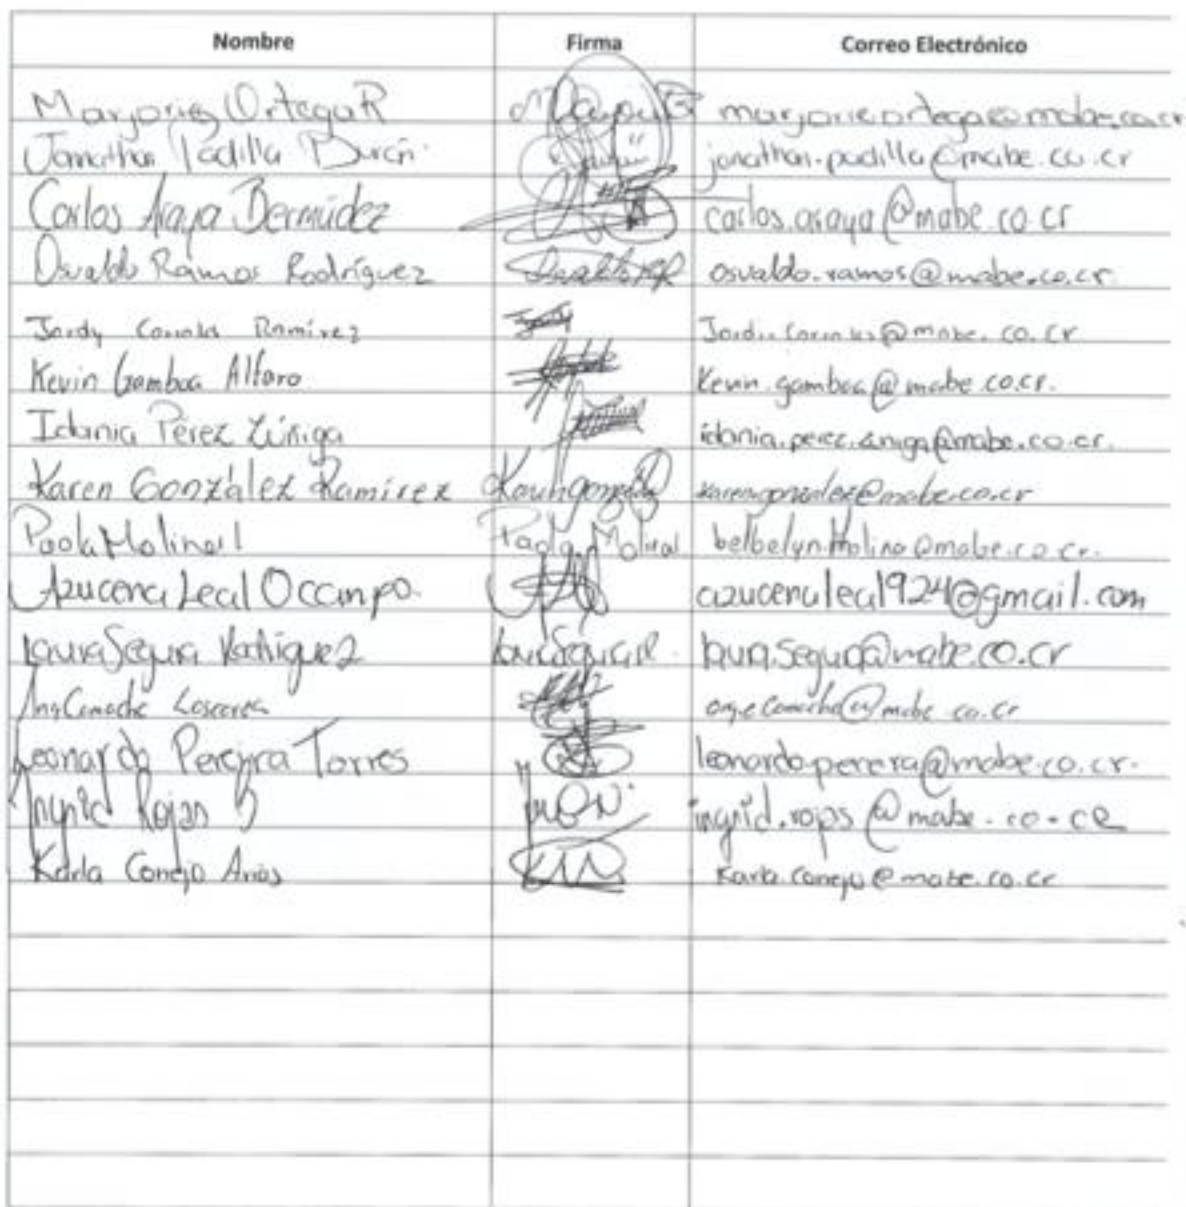 Nombre Firma Correo Electrónico
Marjorie Ortega R marjorie.ortega@mabe.co.cr
Jonathan Padilla Durán jonathan.padilla@mabe.co.cr
Carlos Araya Bermúdez carlos.araya@mabe.co.cr
Osvaldo Ramos Rodríguez Osvaldo RR osvaldo.ramos@mabe.co.cr
Jordy Ramírez @mabe.co.cr
Kevin Gamboa Alfaro Kevin.gamboa@mabe.co.cr.
Idania Pérez Zúñiga idania.perez.zuniga@mabe.co.cr.
Karen González Ramírez Karen gonzález karen.gonzalez@mabe.co.cr
Paola Molina l Paola Molina l belbelyn.Molina@mabe.co.cr.
Azucena Leal Ocampo. azucenaleal924@gmail.com
Laura Segura Rodríguez laura.segura@mabe.co.cr
Camacho @mabe.co.cr
Leonardo Pereira Torres leonardo.pereira@mabe.co.cr.
Ingrid Rojas ingrid.rojas@mabe.co.cr
Karla Conejo Arias Karla.conejo@mabe.co.cr